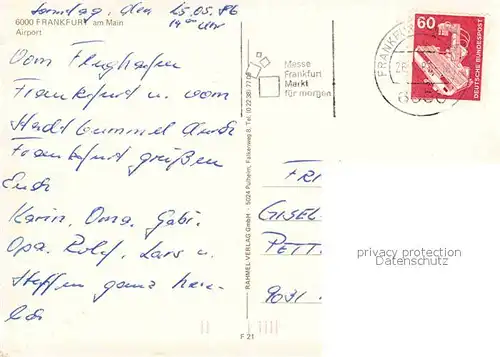 Sonntag, den 25.05.86
14⁰⁰ Uhr
6000 FRANKFURT am Main
Airport
Vom Flughafen
Frankfurt u. vom
Stadtbummel durch
Frankfurt grüßen
Euch
Karin, Oma, Gabi,
Opa, Rolf, Lars u.
Steffen ganz herz-
lich
Messe
Frankfurt
Markt
für morgen
FRANKFU
60
DEUTSCHE BUNDESPOST
RAHMEL-VERLAG GmbH · 5024 Pulheim, Falkenweg 8, Tel. (0 22 38) 77 09
F 21
FRI
GISEL
PETT
8031
privacy protection
Datenschutz